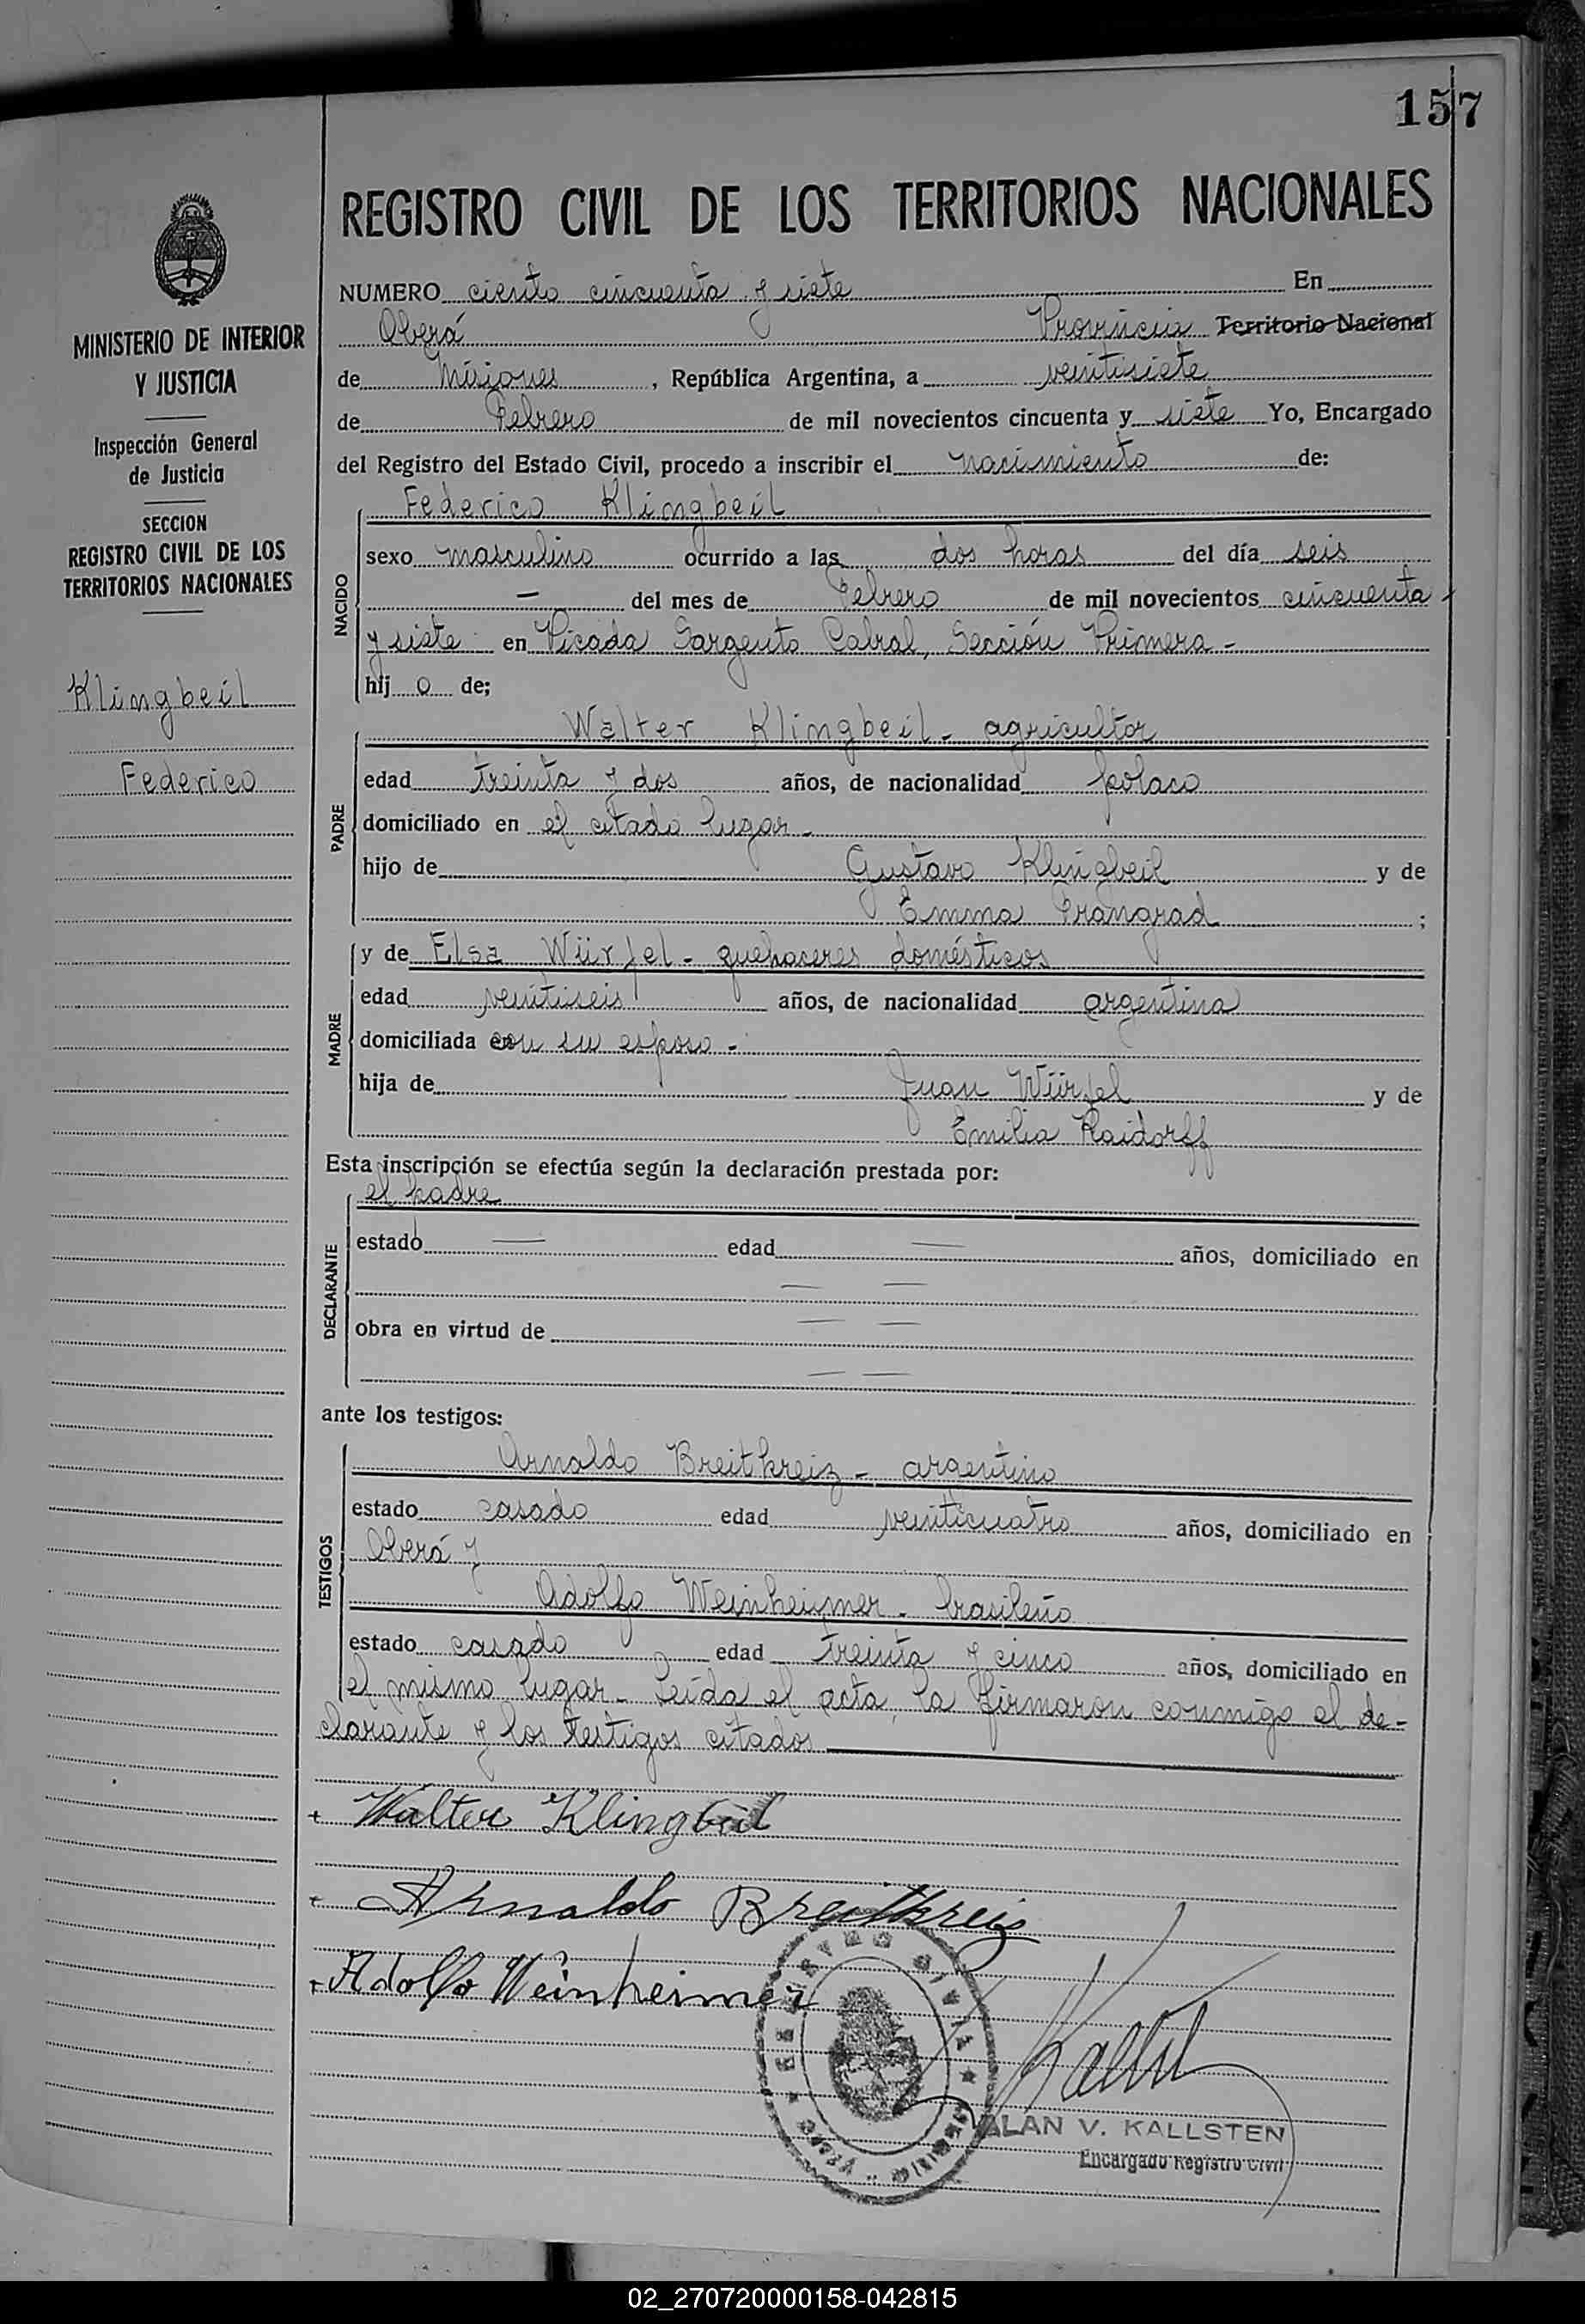 157
REGISTRO CIVIL DE LOS TERRITORIOS NACIONALES
MINISTERIO DE INTERIOR
Y JUSTICIA
Inspección General
de Justicia
SECCION
REGISTRO CIVIL DE LOS
TERRITORIOS NACIONALES
Klingbeil
Federico
NUMERO ciento cincuenta y siete En
Oberá Provincia Territorio Nacional
de Misiones, República Argentina, a veintisiete
de Febrero de mil novecientos cincuenta y siete Yo, Encargado
del Registro del Estado Civil, procedo a inscribir el nacimiento de:
NACIDO
Federico Klingbeil
sexo masculino ocurrido a las dos horas del día seis
— del mes de Febrero de mil novecientos cincuenta
y siete en Picada Sargento Cabral, Sección Primera -
hij o de;
PADRE
Walter Klingbeil - agricultor
edad treinta y dos años, de nacionalidad polaco
domiciliado en el citado lugar -
hijo de Gustavo Klingbeil y de
Emma Prangrad ;
MADRE
y de Elsa Würfel - quehaceres domésticos
edad veintiseis años, de nacionalidad argentina
domiciliada con su esposo -
hija de Juan Würfel y de
Emilia Raidorff
Esta inscripción se efectúa según la declaración prestada por:
DECLARANTE
el padre
estado — edad — años, domiciliado en
— —
obra en virtud de — —
— —
ante los testigos:
TESTIGOS
Arnaldo Breitkreiz - argentino
estado casado edad veinticuatro años, domiciliado en
Oberá y
Adolfo Weinheimer - brasileño
estado casado edad treinta y cinco años, domiciliado en
el mismo lugar - Leída el acta, la firmaron conmigo el de-
clarante y los testigos citados
+ Walter Klingbeil
+ Arnaldo Breitkreiz
+ Adolfo Weinheimer
REGISTRO CIVIL
OBERA MISIONES
ALAN V. KALLSTEN
Encargado Registro Civil
02_270720000158-042815